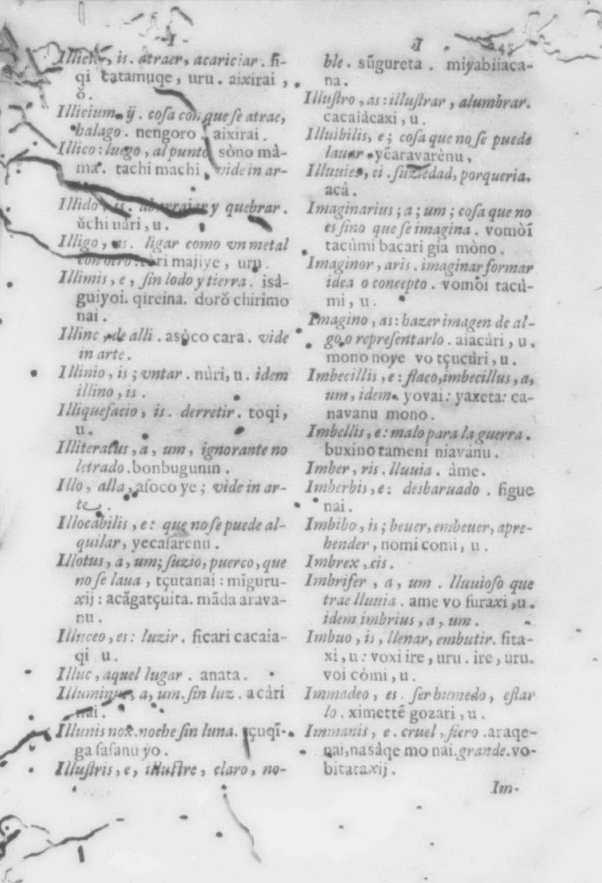 I
Illicio, is. atraer, acariciar. fi-
qi catamuqe, uru. aixirai,
ŏ.
Illicium, ij. cosa con que se atrae,
halago. nengoro, aixirai.
Illico: luego, al punto. sòno mà-
ma. tachi machi, vide in ar-
Illido, is. y quebrar.
ŭchi uàri, u.
Illigo, as. ligar como vn metal
con otro. majiye, uru.
Illimis, e, sin lodo y tierra. isà-
guiyoi. qireina. dorŏ chirimo
nai.
Illinc, de alli. asòco cara. vide
in arte.
Illinio, is; vntar. nùri, u. idem
illino, is.
Illiquefacio, is. derretir. toqi,
u.
Illiteratus, a, um, ignorante no
letrado. bonbugunin.
Illo, allà, asoco ye; vide in ar-
te.
Illocabilis, e: que no se puede al-
quilar, yecasarenu.
Illotus, a, um; suzio, puerco, que
no se laua, tçutanai: mĩguru-
xij: acăgatçuita. mãda arava-
nu.
Illuceo, es: luzir. ficari cacaia-
qi u.
Illuc, aquel lugar. anata.
Illuminus, a, um. sin luz. acàri
nai.
Illunis nox. noche sin luna. tçuqĩ-
ga sasanu yo.
Illustris, e, illustre, claro, no-
I 45
ble. sũgureta. miyabiiaca-
na.
Illustro, as: illustrar, alumbrar.
cacaiàcaxi, u.
Illuibilis, e; cosa que no se puede
lauar. yĕaravarènu,
Illuuies, ei. suziedad, porqueria.
acà.
Imaginarius; a; um; cosa que no
es sino que se imagina. vomòi
tacùmi bacari gia mòno.
Imaginor, aris. imaginar formar
idea o concepto. vomòi tacù-
mi, u.
Imagino, as: hazer imagen de al-
go, o representarlo. aiacùri, u.
mono noye vo tçucùri, u.
Imbecillis, e: flaco, imbecillus, a,
um, idem. yovai: yaxeta: ca-
navanu mono.
Imbellis, e: malo para la guerra.
buxino tameni niavanu.
Imber, ris. lluuia. àme.
Imberbis, e: desbaruado. figue
nai.
Imbibo, is; beuer, embeuer, apre-
hender, nomi comi, u.
Imbrex, cis.
Imbrifer, a, um. lluuioso que
trae lluuia. ame vo furaxi, u.
idem imbrius, a, um.
Imbuo, is, llenar, embutir. fita-
xi, u: voxi ire, uru. ire, uru.
voi còmi, u.
Immadeo, es. ser humedo, estar
lo. ximettĕ gozari, u.
Immanis, e. cruel, fiero. araqe-
nai, nasàqe mo nai. grande. vo-
bitataxij.
Im-